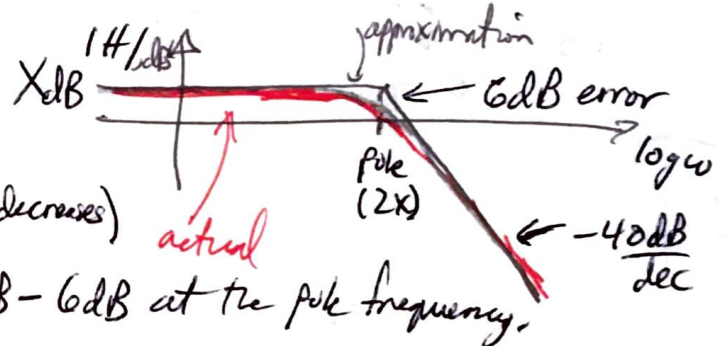 |H|dB
approximation
XdB
6dB error
logω
pole
(2x)
decreases)
actual
-40dB
dec
B - 6dB at the pole frequency.